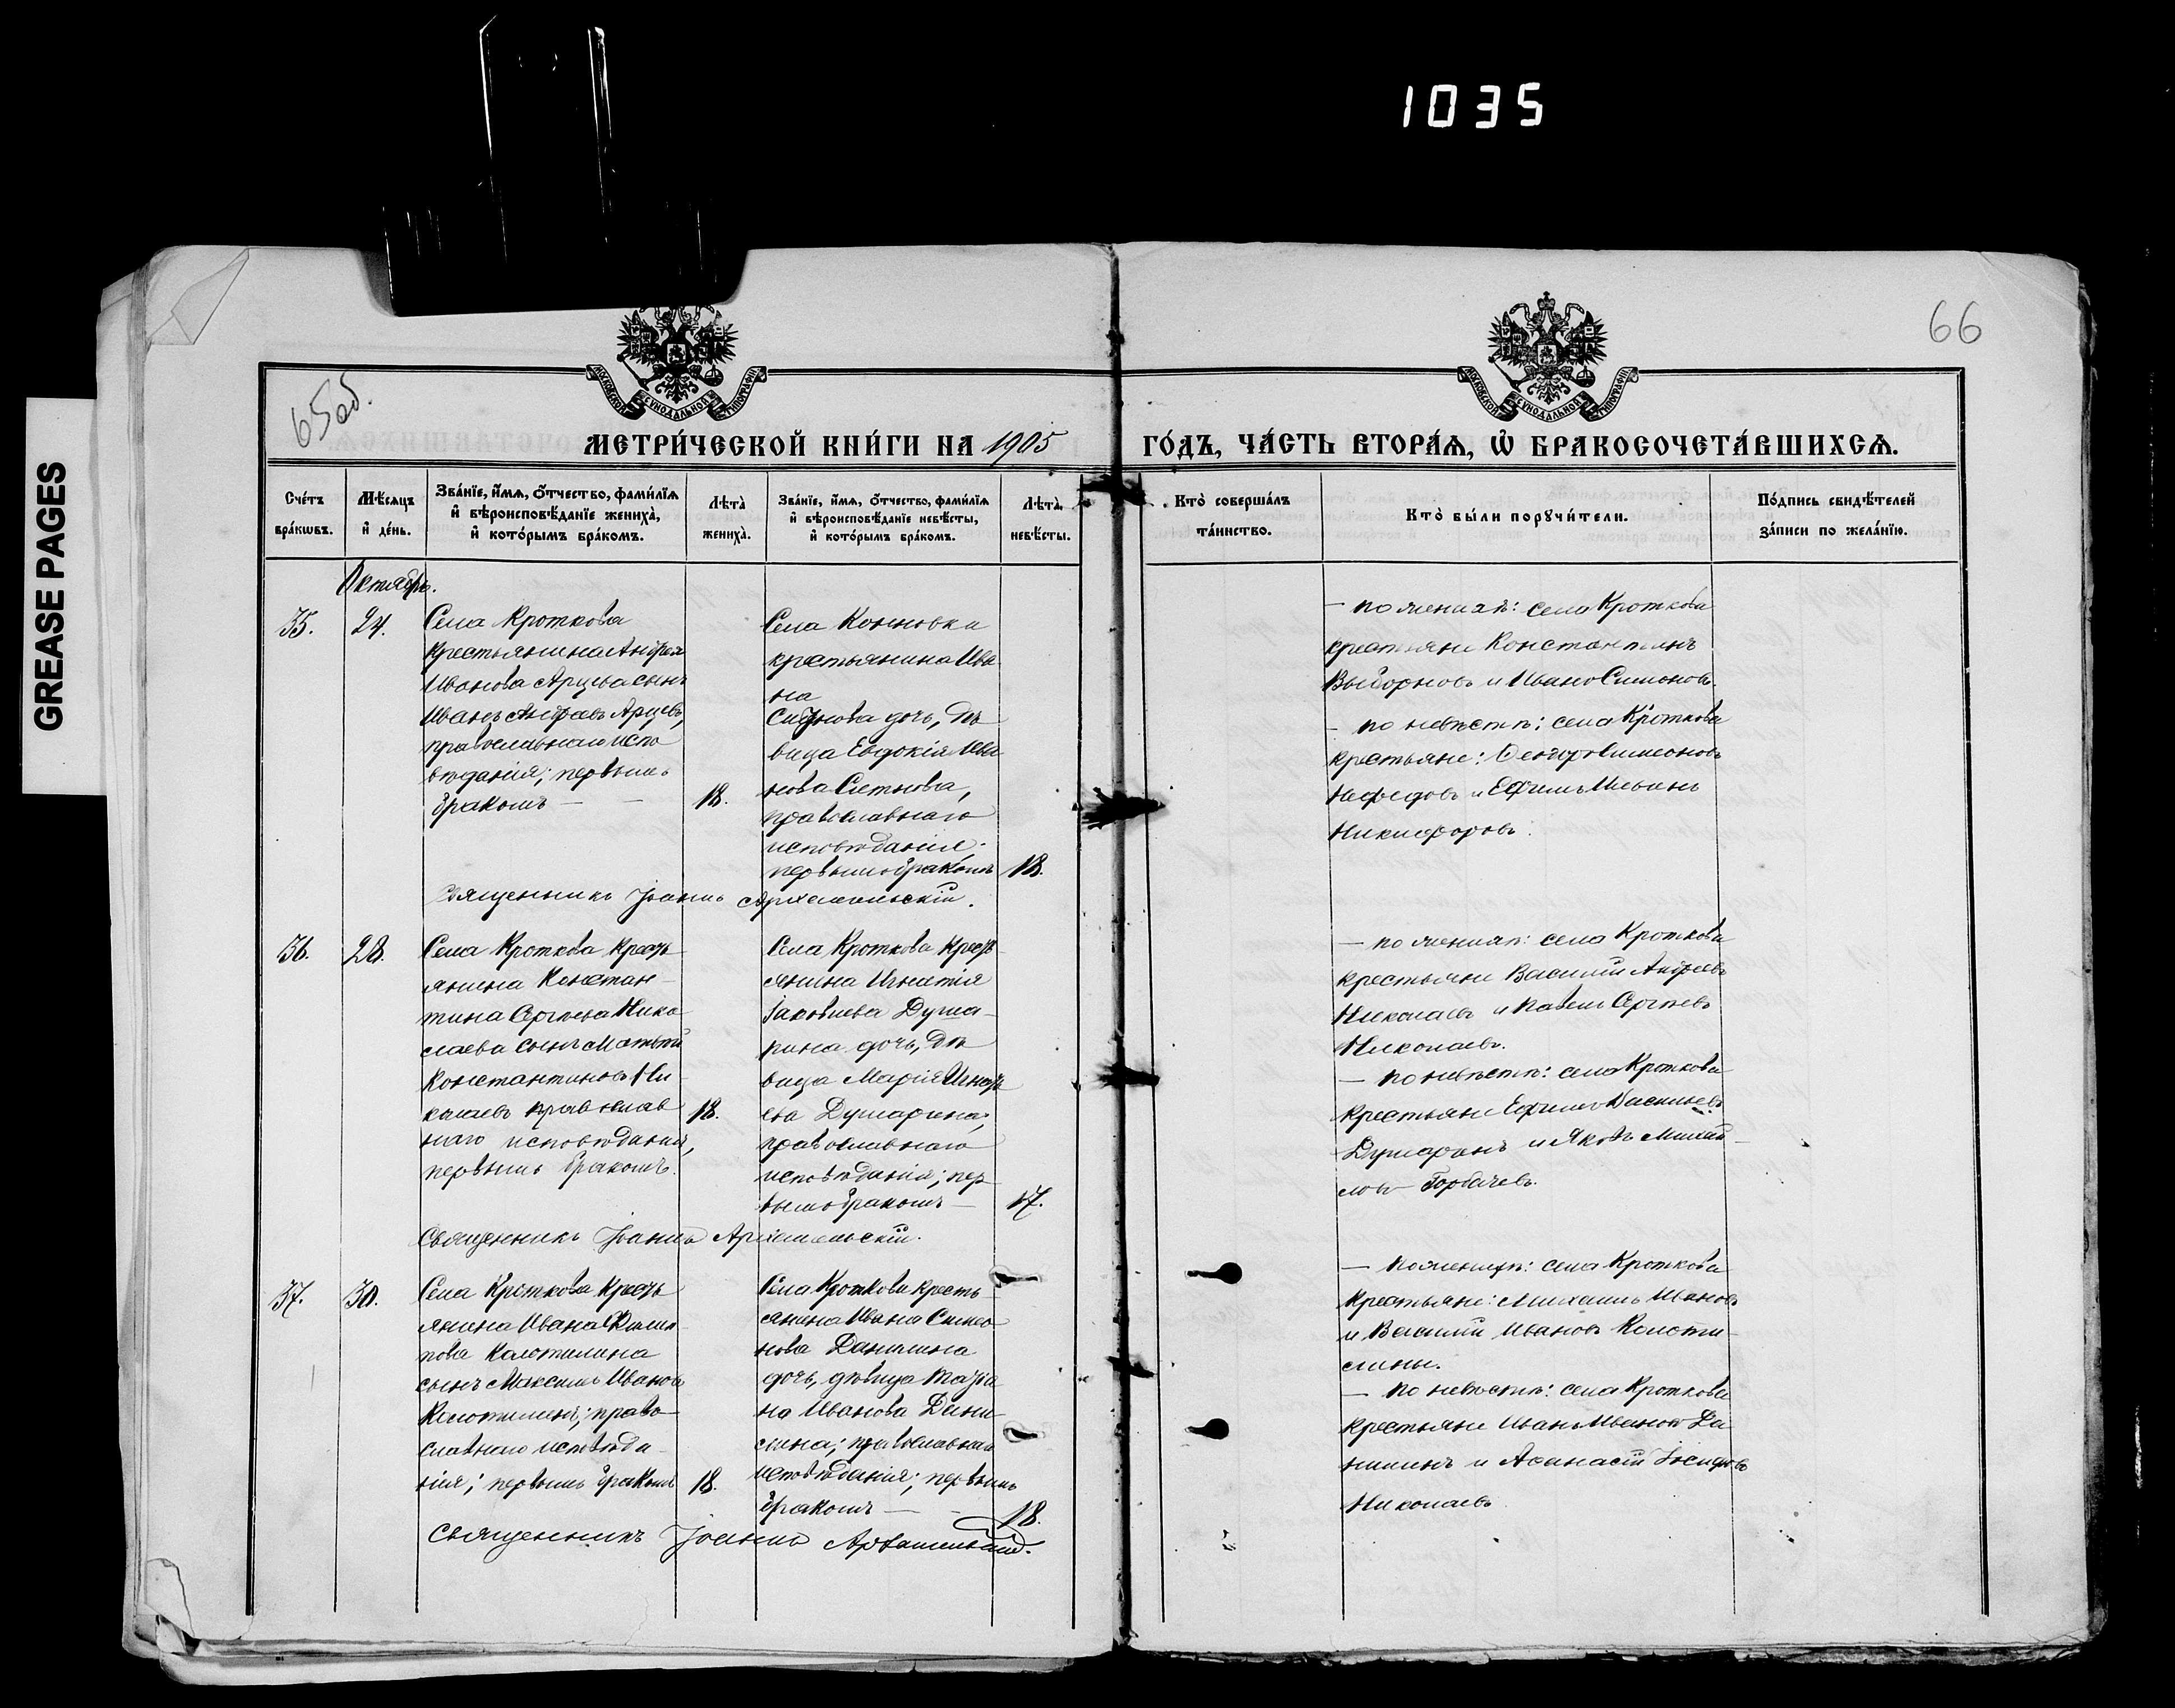 1035
GREASE PAGES
65об.
66
МОСКОВСКОЙ СѴНОДАЛЬНОЙ ТИПОГРАФІИ
МОСКОВСКОЙ СѴНОДАЛЬНОЙ ТИПОГРАФІИ
МЕТРИ́ЧЕСКОЙ КНИ́ГИ НА 1905 ГО́ДЪ, ЧА́СТЬ ВТОРА́Ѧ, Ѡ҆ БРАКОСОЧЕТА́ВШИХСѦ.
Сче́тъ
бра́кѡвъ.
Мѣ́сѧцъ
и҆ де́нь.
Зва́нїе, и҆́мѧ, ѻ҆́тчество, фами́лїѧ
и҆ вѣроисповѣ́данїе жениха̀,
и҆ кото́рымъ бра́комъ.
Лѣта̀
жениха̀.
Зва́нїе, и҆́мѧ, ѻ҆́тчество, фами́лїѧ
и҆ вѣроисповѣ́данїе невѣ́сты,
и҆ кото́рымъ бра́комъ.
Лѣта̀
невѣ́сты.
Кто̀ соверша́лъ
та́инство.
Кто̀ бы́ли порꙋчи́тели.
По́дпись свидѣ́телей
за́писи по жела́нїю.
Октябрь.
35.
24.
Села Кроткова
крестьянина Андрея
Иванова Арцева сынъ
Иванъ Андреевъ Арцевъ,
православнаго испо
вѣданія; первымъ
бракомъ —
18.
Села Конновки
крестьянина Ива
на
дочь, дѣ
вица Евдокія Ива
нова
православнаго
исповѣданія.
первымъ бракомъ
18.
Священникъ Іоаннъ Архангельскій.
— по женихѣ: села Кроткова
крестьяне Константинъ
Выборновъ и Иванъ Симоновъ.
— по невѣстѣ: села Кроткова
крестьяне: Симеоновъ
Нефедовъ и Ефимъ
Никифоровъ.
36.
28.
Села Кроткова кресть
янина Констан-
тина Сергѣева Нико
лаева сынъ Матвѣй
Константиновъ Ни-
колаевъ православ
наго исповѣданія,
первымъ бракомъ.
18.
Села Кроткова кресть
янина Игнатія
Іаковлева Душа-
рина дочь, дѣ
вица Марія Игнать
ева Душарина,
православнаго
исповѣданія; пер
вымъ бракомъ —
17.
Священникъ Іоаннъ Архангельскій.
— по женихѣ: села Кроткова
крестьяне Василій Андреевъ
Николаевъ и Павелъ Сергѣевъ
Николаевъ.
— по невѣстѣ: села Кроткова
крестьяне Ефимъ Васильевъ
Душаринъ и Яковъ Михай-
ловъ Горбачевъ.
37.
30.
Села Кроткова кресть
янина Ивана Филип-
пова Колотилина
сынъ Максимъ Ивановъ
Колотилинъ; право-
славнаго исповѣда-
нія; первымъ бракомъ
18.
Села Кроткова кресть-
янина Ивана Симео
нова Данилина
дочь, дѣвица Татіа
на Иванова Дани-
лина; православнаго
исповѣданія; первымъ
бракомъ —
18.
Священникъ Іоаннъ Архангельскій.
— по женихѣ: села Кроткова
крестьяне: Михаилъ Ивановъ
и Василій Ивановъ Колоти-
лины.
— по невѣстѣ: села Кроткова
крестьяне Иванъ Ивановъ Да
нилинъ и Аѳанасій
Николаевъ